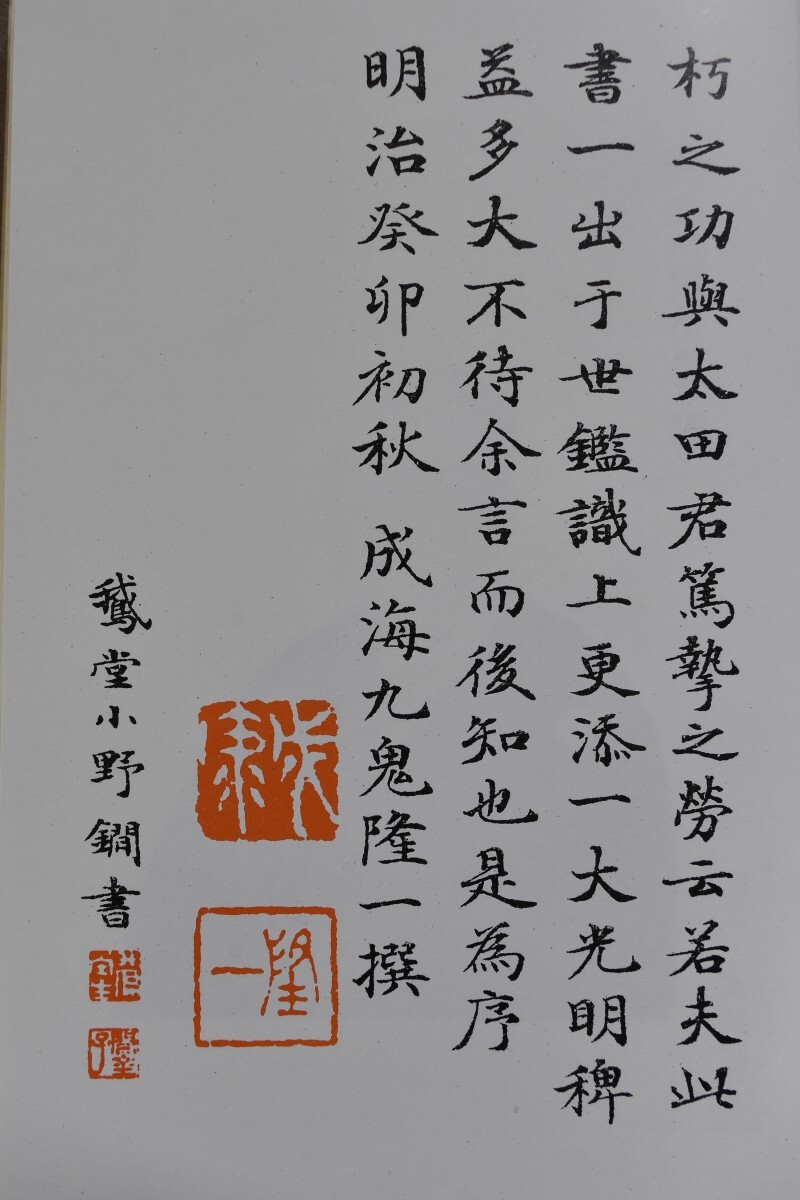 朽之功與太田君篤摯之勞云若夫此
書一出于世鑑識上更添一大光明稗
益多大不待余言而後知也是為序
明治癸卯初秋 成海九鬼隆一撰
隆一
鵞堂小野鐗書